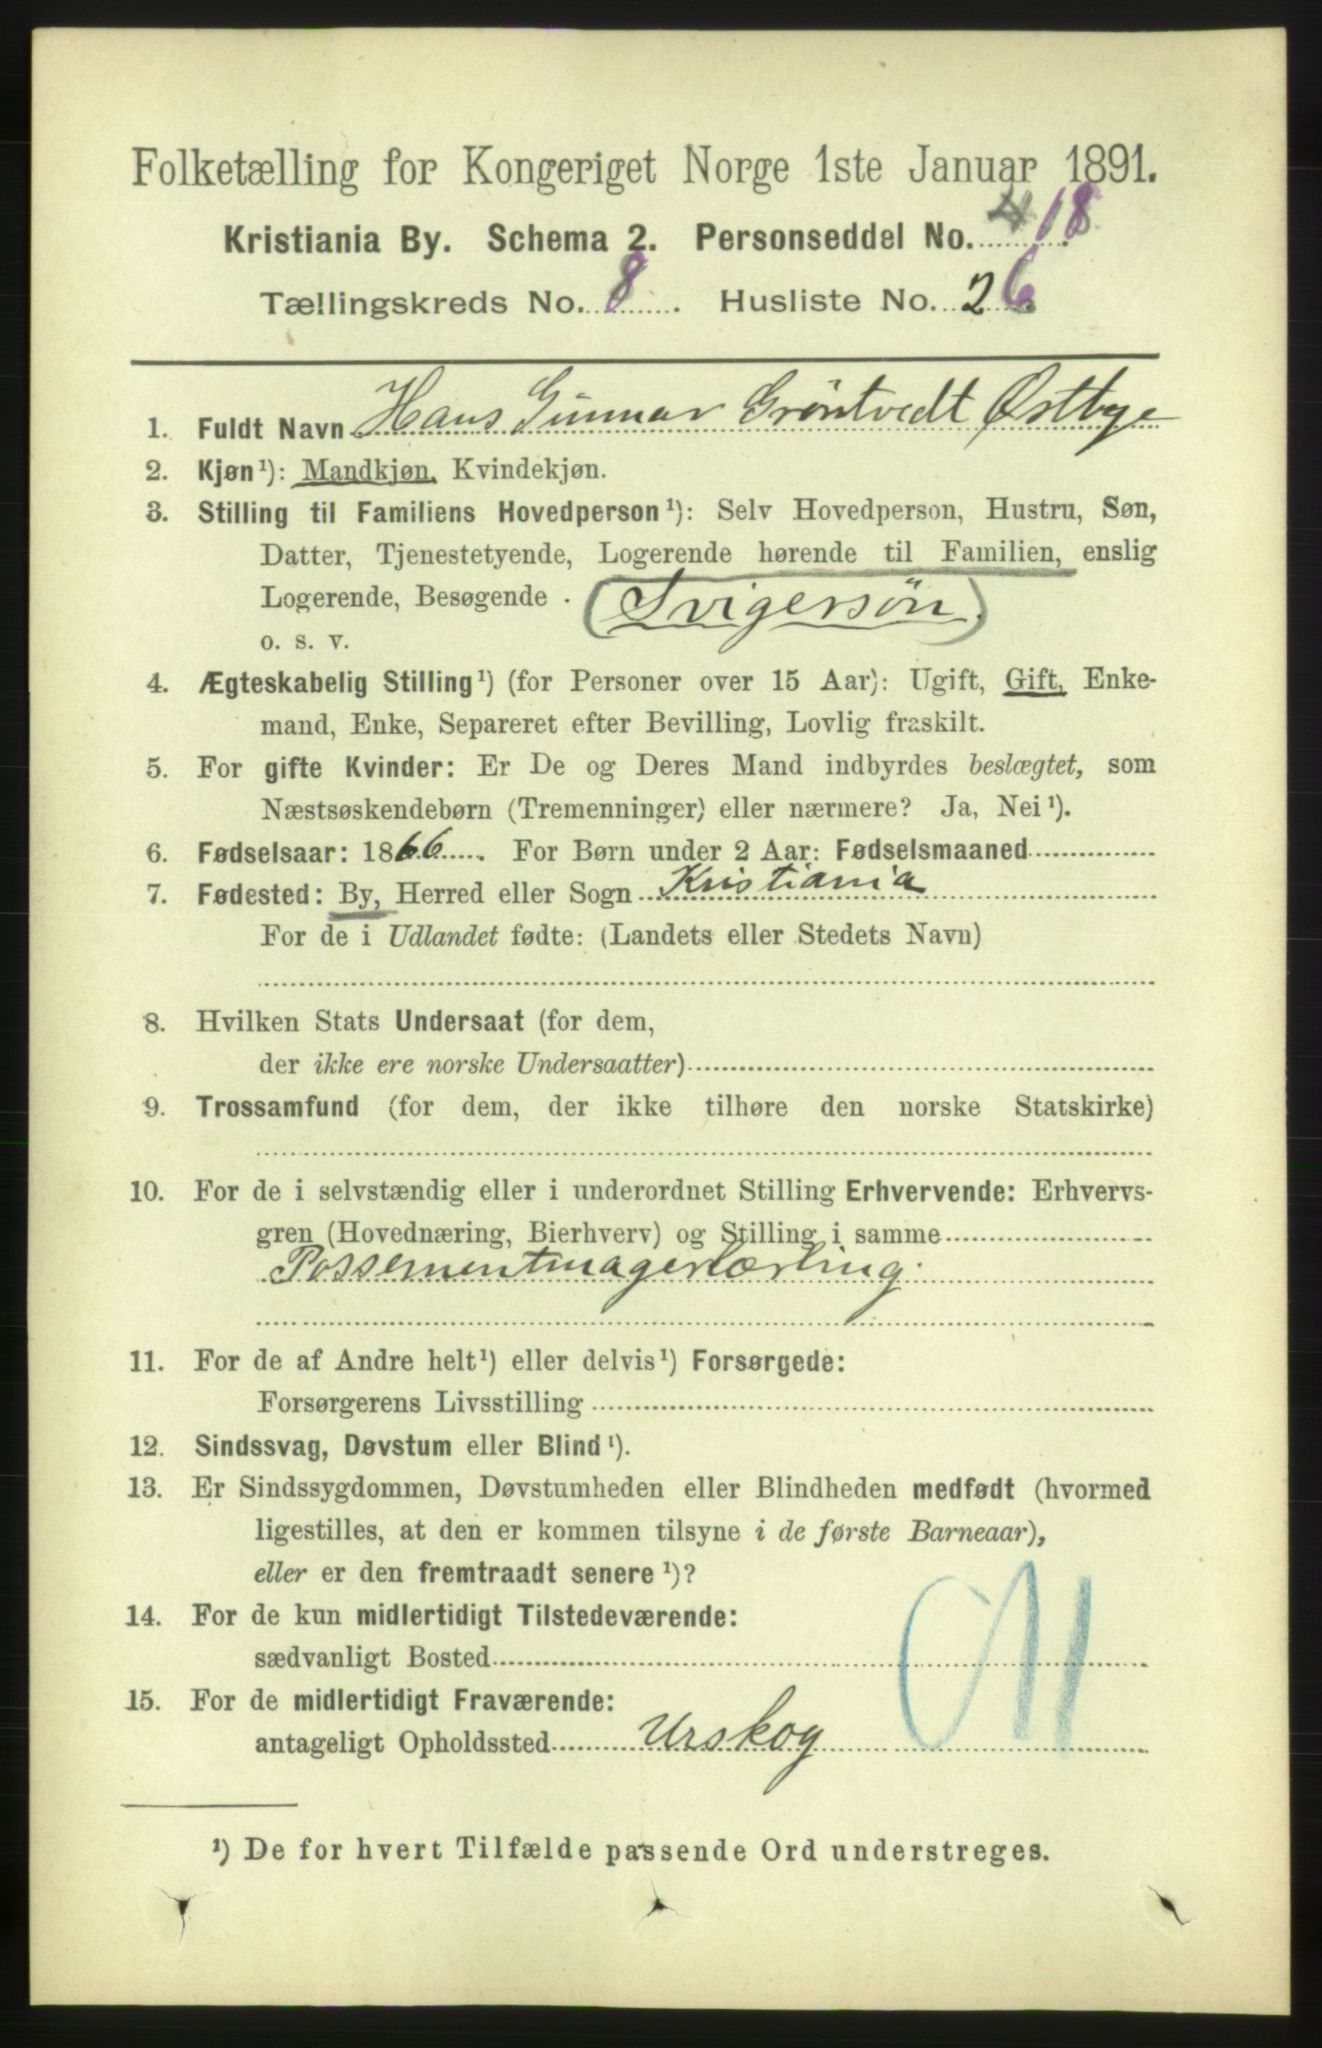 Folketælling for Kongeriget Norge 1ste Januar 1891.
Kristiania By. Schema 2. Personseddel No. 18
Tællingskreds No. 8. Husliste No. 26
1. Fuldt Navn Hans Gunnar Gröntvedt Østbye
2. Kjøn¹): Mandkjøn, Kvindekjøn.
3. Stilling til Familiens Hovedperson¹): Selv Hovedperson, Hustru, Søn,
Datter, Tjenestetyende, Logerende hørende til Familien, enslig
Logerende, Besøgende . (Svigersön.)
o. s. v.
4. Ægteskabelig Stilling¹) (for Personer over 15 Aar): Ugift, Gift, Enke-
mand, Enke, Separeret efter Bevilling, Lovlig fraskilt.
5. For gifte Kvinder: Er De og Deres Mand indbyrdes beslægtet, som
Næstsøskendebørn (Tremenninger) eller nærmere? Ja, Nei¹).
6. Fødselsaar: 1866. For Børn under 2 Aar: Fødselsmaaned
7. Fødested: By, Herred eller Sogn Kristiania
For de i Udlandet fødte: (Landets eller Stedets Navn)
8. Hvilken Stats Undersaat (for dem,
der ikke ere norske Undersaatter)
9. Trossamfund (for dem, der ikke tilhøre den norske Statskirke)
10. For de i selvstændig eller i underordnet Stilling Erhvervende: Erhvervs-
gren (Hovednæring, Bierhverv) og Stilling i samme
Possementmagerlærling.
11. For de af Andre helt¹) eller delvis¹) Forsørgede:
Forsørgerens Livsstilling
12. Sindssvag, Døvstum eller Blind¹).
13. Er Sindssygdommen, Døvstumheden eller Blindheden medfødt (hvormed
ligestilles, at den er kommen tilsyne i de første Barneaar),
eller er den fremtraadt senere¹)?
14. For de kun midlertidigt Tilstedeværende:
sædvanligt Bosted
15. For de midlertidigt Fraværende:
antageligt Opholdssted Urskog
¹) De for hvert Tilfælde passende Ord understreges.